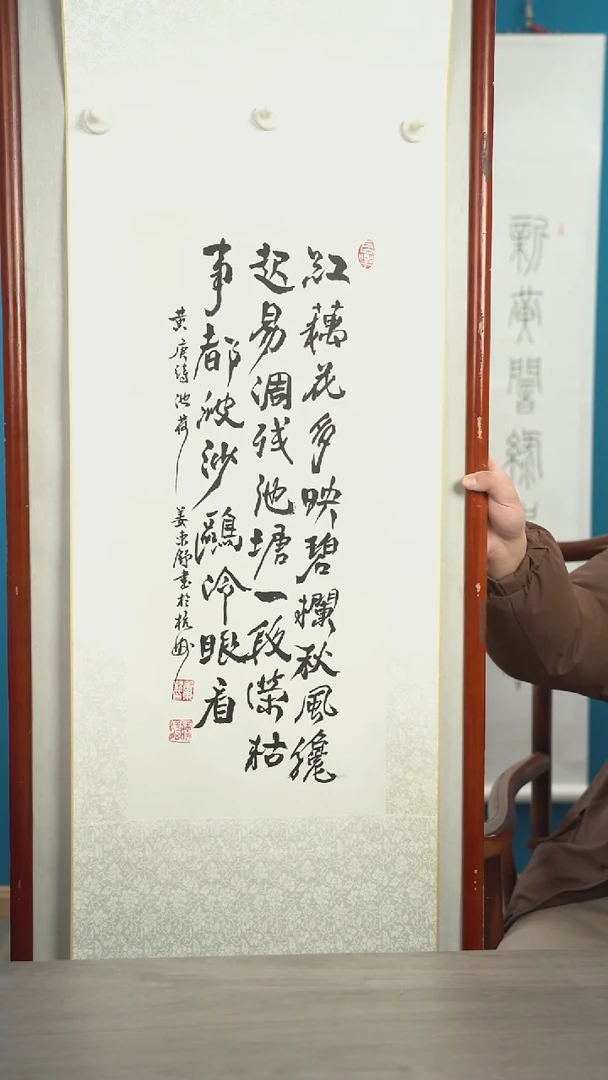 紅藕花多映碧欄秋風纔
起易凋残池塘一段榮枯
事都被沙鷗冷眼看
黄庚詩池荷 姜东舒書於杭州
新黄